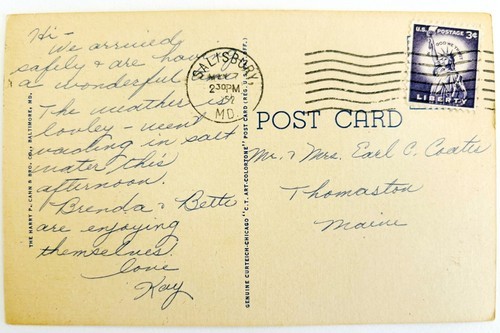 Hi -
We arrived
safely & are
a wonderful
The weather is
lovley - went
wading in salt
water this
afternoon.
Brenda & Bette
are enjoying
themselves.
love
Kay
THE HARRY P. CANN & BRO. CO., BALTIMORE, MD.
GENUINE CURTEICH-CHICAGO "C.T. ART-COLORTONE" POST CARD (REG. U.S. PAT. OFF.)
SALISBURY,
2 30 PM
MD.
U.S. POSTAGE 3¢
IN GOD WE TRUST
LIBERTY
POST CARD
Mr. & Mrs. Earl C. Coates
Thomaston
Maine